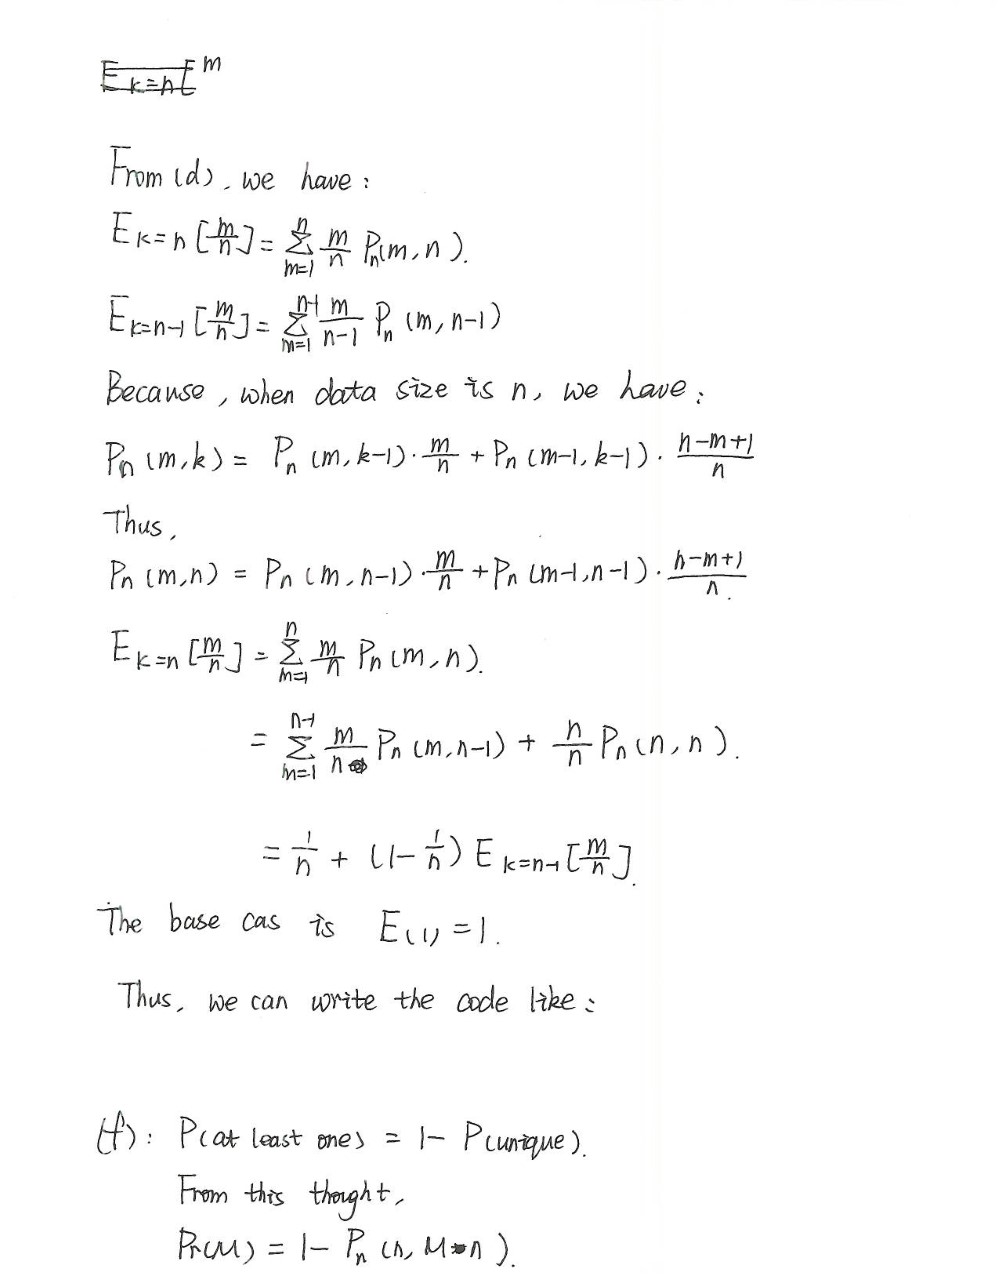 E_{k=n}[ m
From (d), we have:
E_{k=n}[m/n] = Σ_{m=1}^{n} m/n P_n(m,n).
E_{k=n-1}[m/n] = Σ_{m=1}^{n-1} m/(n-1) P_n(m,n-1)
Because, when data size is n, we have:
P_n(m,k) = P_n(m,k-1)·m/n + P_n(m-1,k-1)·(n-m+1)/n
Thus,
P_n(m,n) = P_n(m,n-1)·m/n + P_n(m-1,n-1)·(n-m+1)/n.
E_{k=n}[m/n] = Σ_{m=1}^{n} m/n P_n(m,n).
= Σ_{m=1}^{n-1} m/n P_n(m,n-1) + n/n P_n(n,n).
= 1/n + (1-1/n) E_{k=n-1}[m/n].
The base cas is E(1)=1.
Thus, we can write the code like:
(f): P(at least one) = 1- P(unique).
From this thought,
Pr(M) = 1- P_n(n, M*n).